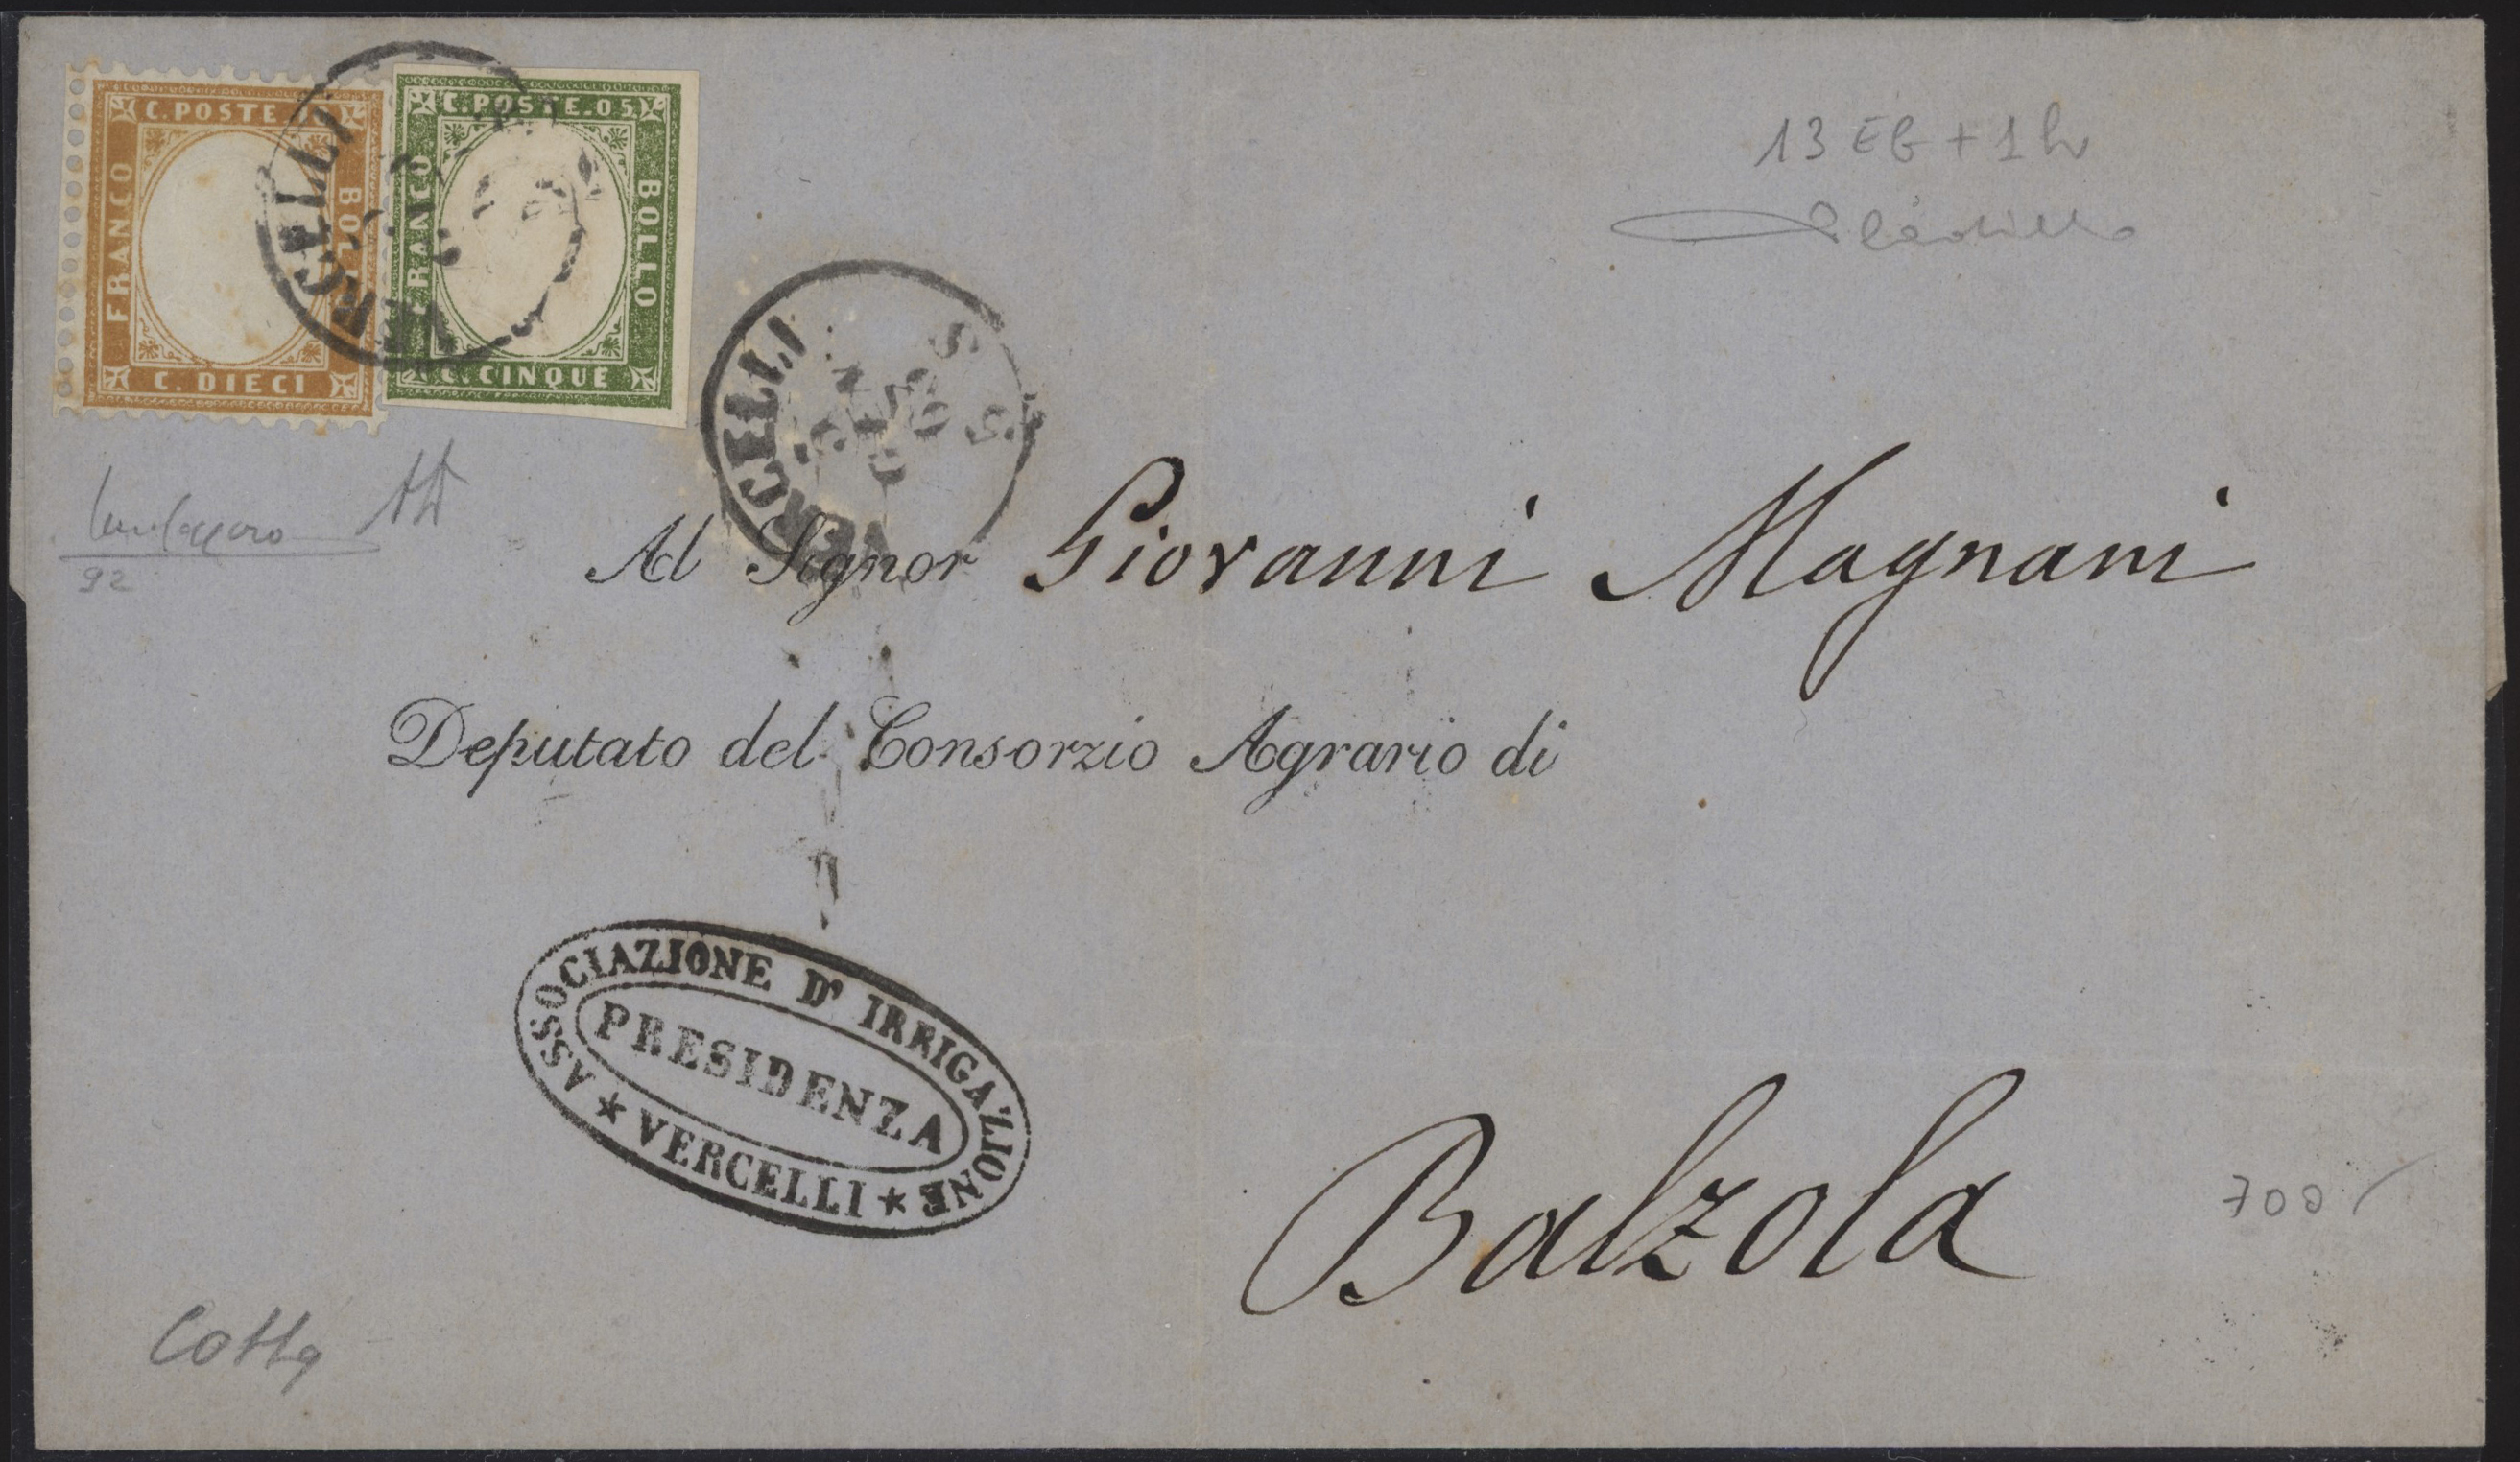 C. POSTE.
FRANCO
BOLLO
C. DIECI
C. POSTE. 05
FRANCO
BOLLO
C. CINQUE
VERCELLI
VERCELLI
13 EB + 1 h
92
Al Signor Giovanni Magnani
Deputato del Consorzio Agrario di
ASSOCIAZIONE D' IRRIGAZIONE
PRESIDENZA
★ VERCELLI ★
Balzola
700
Cotta